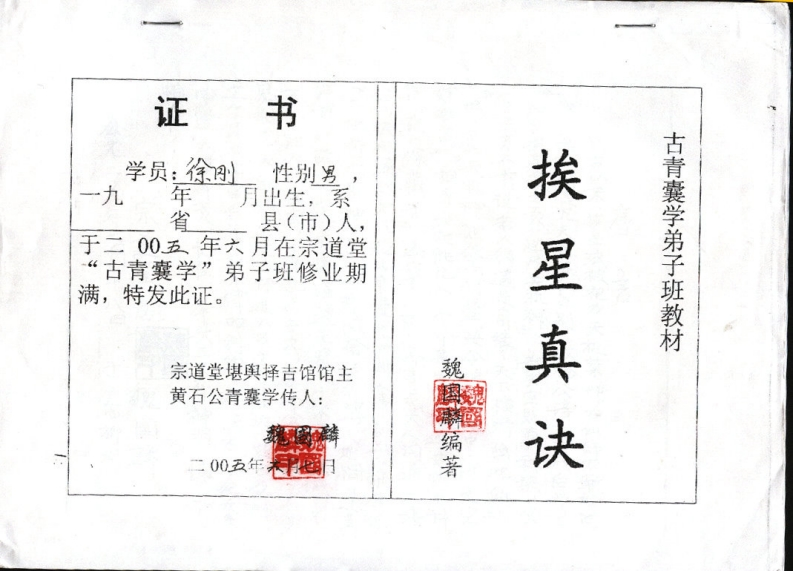 证 书
学员：徐刚 性别男，
一九 年 月出生，系
省 县（市）人，
于二00五年六月在宗道堂
“古青囊学”弟子班修业期
满，特发此证。
宗道堂堪舆择吉馆馆主
黄石公青囊学传人：
魏國麟
二00五年六月七日
古青囊学弟子班教材
挨星真诀
魏国麟编著